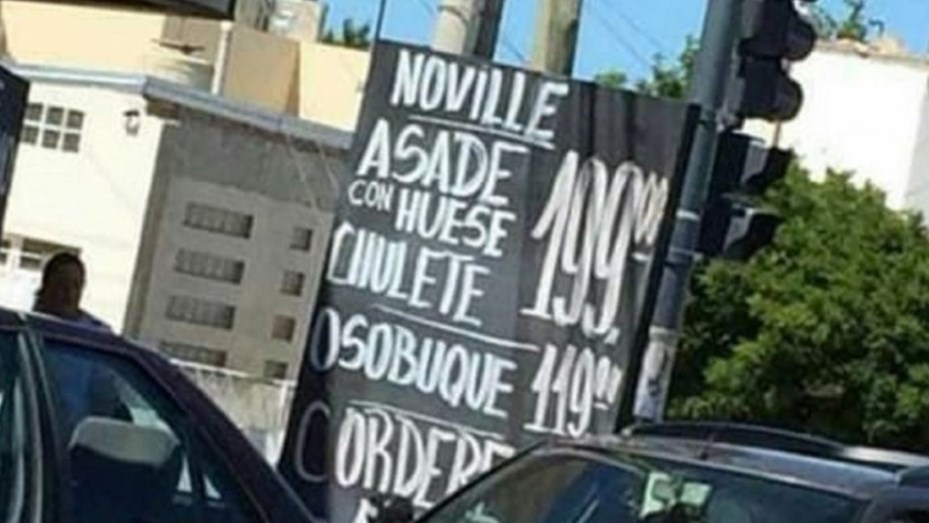 NOVILLE
ASADE
CON HUESE
CHULETE
199,00
OSOBUQUE 119,00
CORDERE